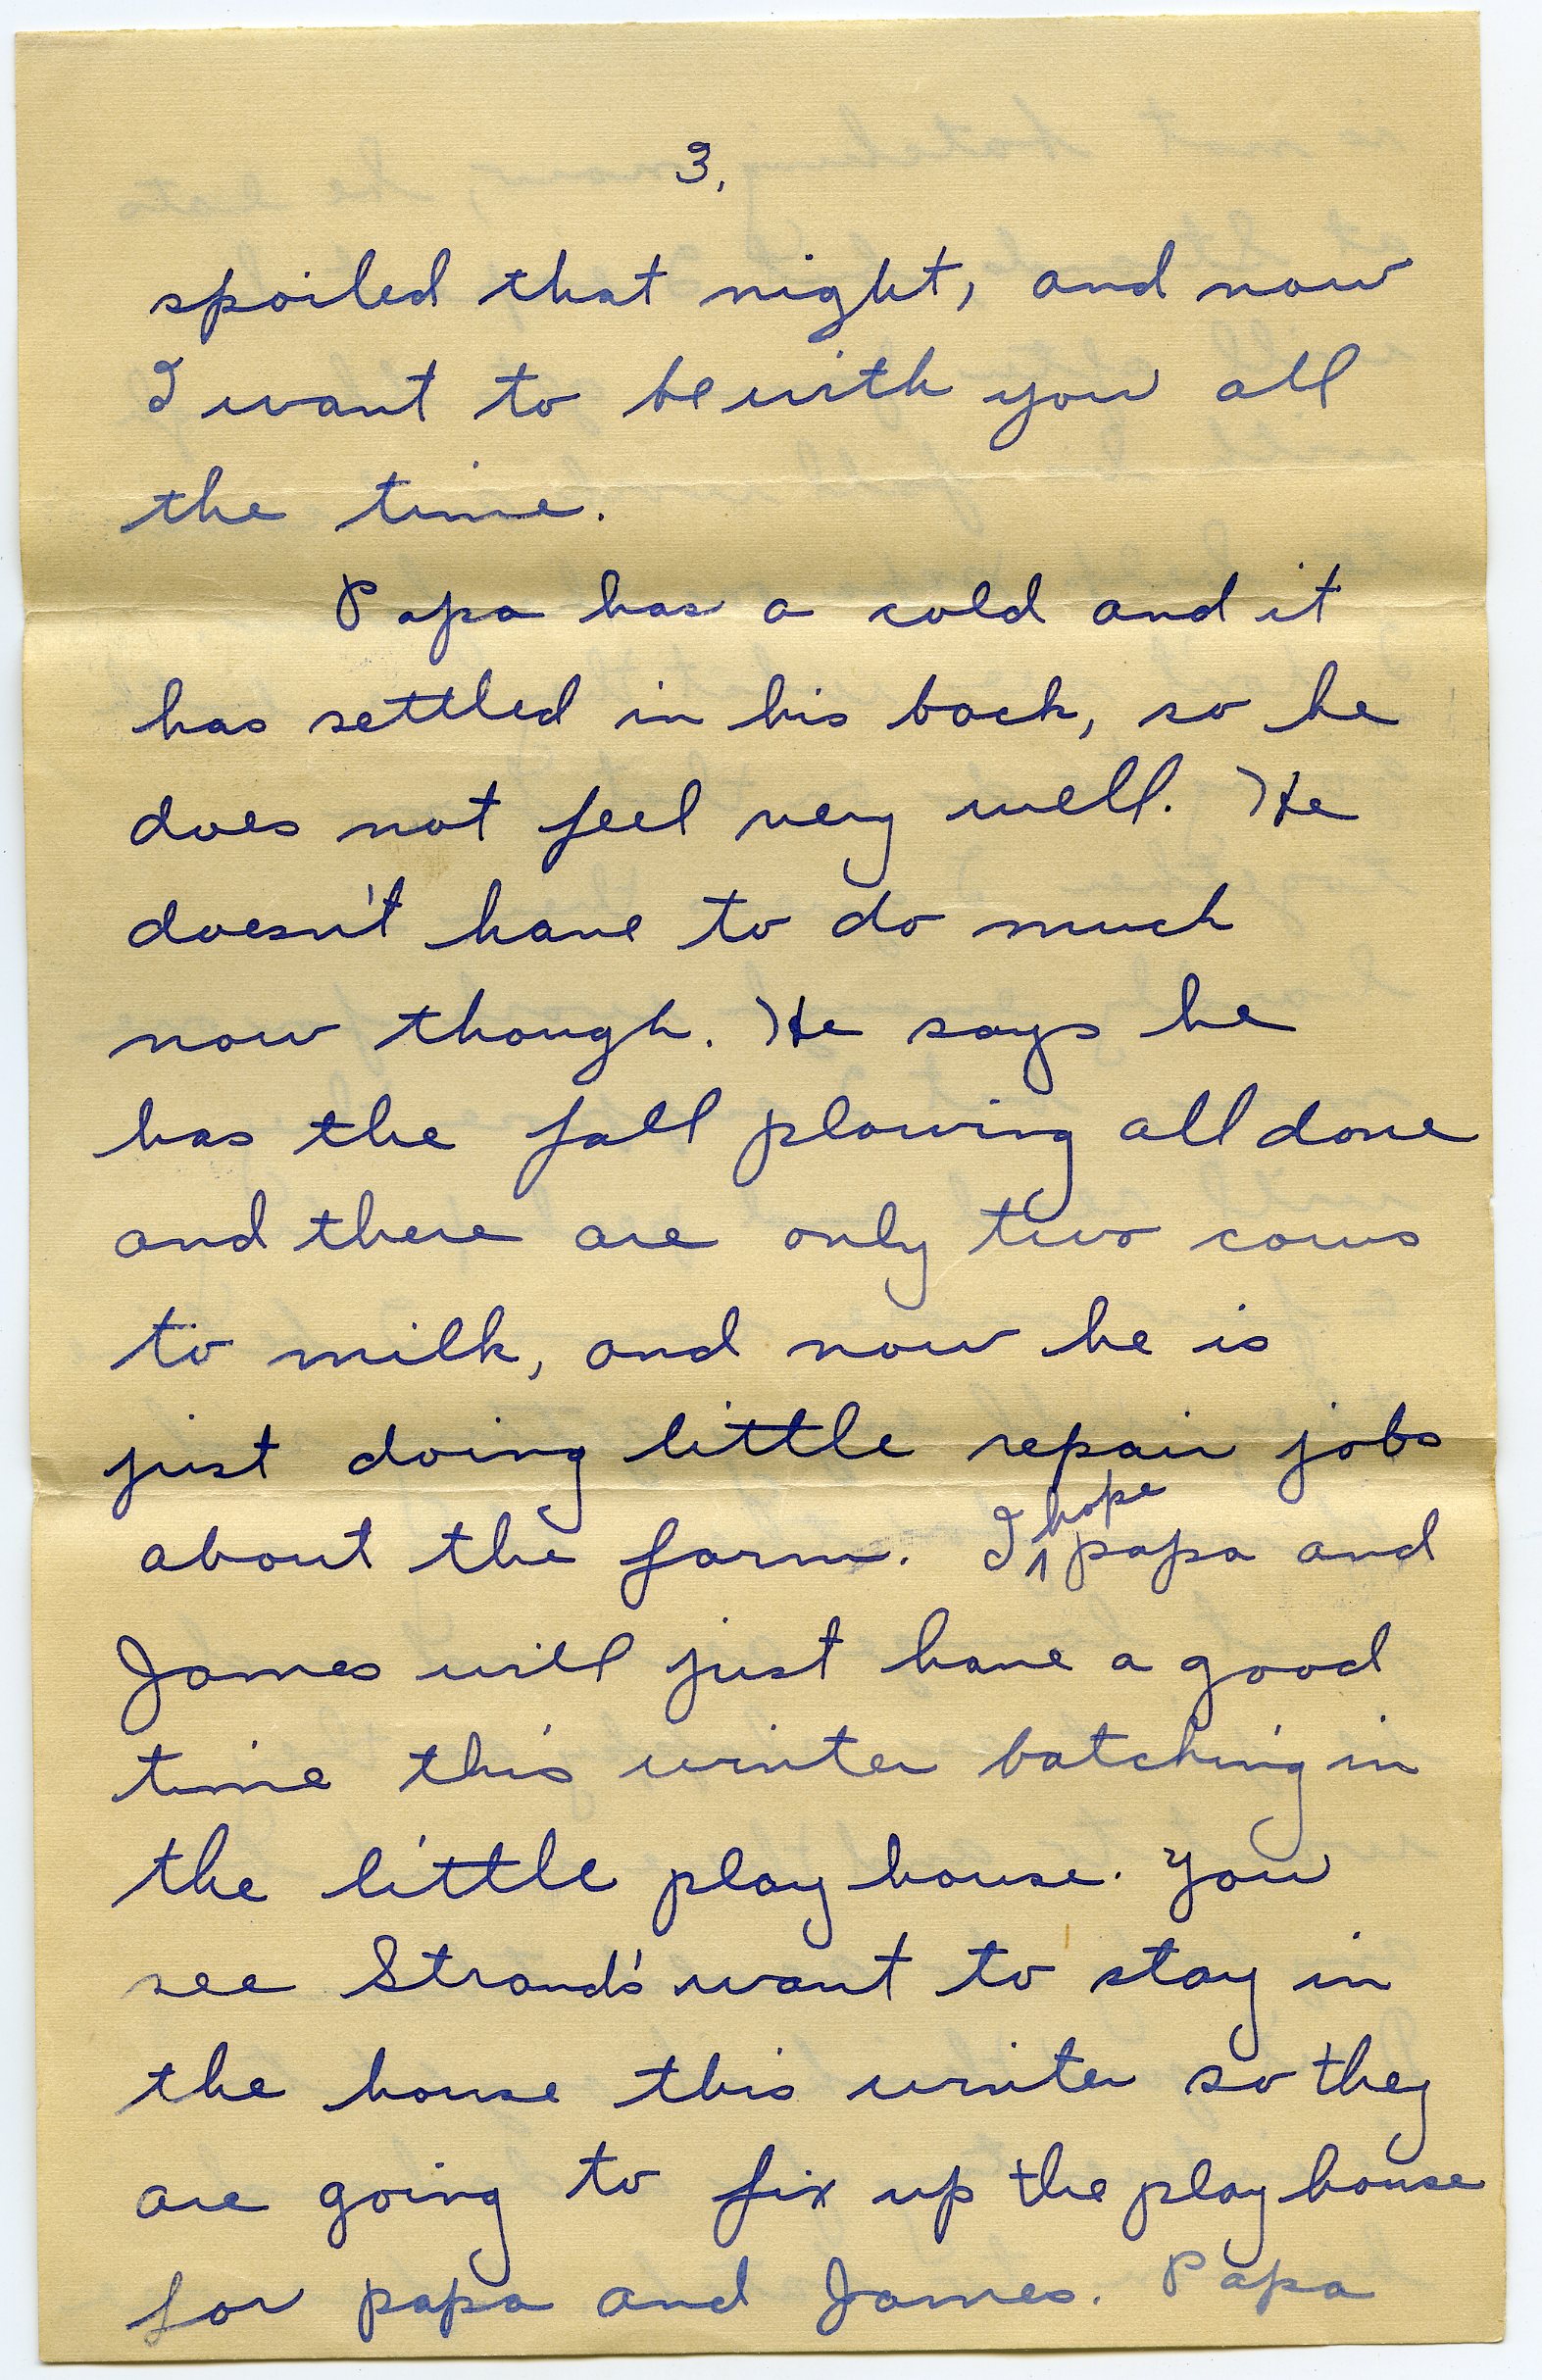 3.
spoiled that night, and now
I want to be with you all
the time.
Papa has a cold and it
has settled in his back, so he
does not feel very well. He
doesn't have to do much
now though. He says he
has the fall plowing all done
and there are only two cows
to milk, and now he is
just doing little repair jobs
about the farm. I hope papa and
James will just have a good
time this winter batching in
the little play house. You
see Strand's want to stay in
the house this winter so they
are going to fix up the play house
for papa and James. Papa